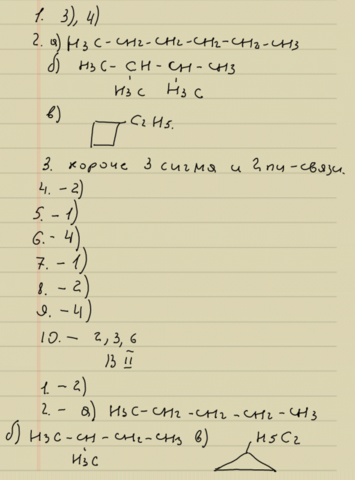 1. 3), 4)
2. а) H3C-CH2-CH2-CH2-CH2-CH3
б) H3C-CH-CH-CH3
H3C H3C
в) C2H5.
3. короче 3 сигма и 2 пи-связи.
4. - 2)
5. - 1)
6. - 4)
7. - 1)
8. - 2)
9. - 4)
10. - 2, 3, 6
В II
1. - 2)
2. - а) H3C-CH2-CH2-CH2-CH3
б) H3C-CH-CH2-CH3 в) H5C2
H3C